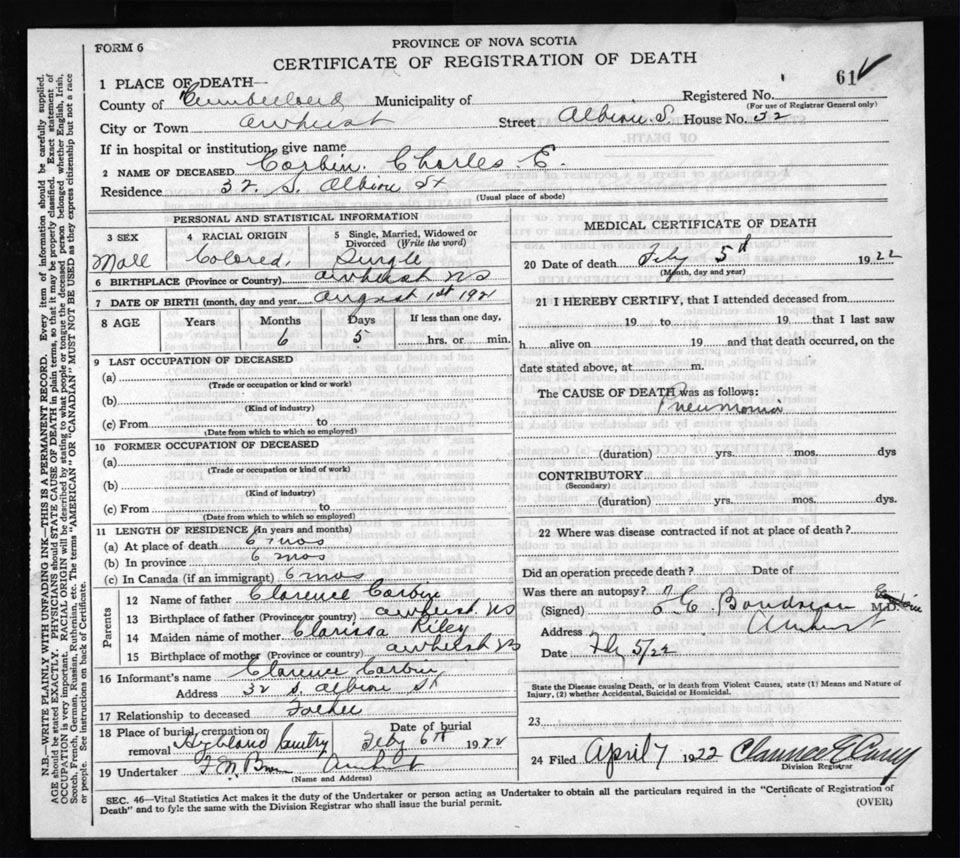 FORM 6
PROVINCE OF NOVA SCOTIA
CERTIFICATE OF REGISTRATION OF DEATH
61
1 PLACE OF DEATH—
Registered No.
(For use of Registrar General only)
County of Cumberland Municipality of
City or Town Amherst Street Albion S. House No. 32
If in hospital or institution, give name
2 NAME OF DECEASED Corbin Charles E.
Residence 32 S. Albion St
(Usual place of abode)
PERSONAL AND STATISTICAL INFORMATION
3 SEX 4 RACIAL ORIGIN 5 Single, Married, Widowed or Divorced (Write the word)
Male Colored Single
6 BIRTHPLACE (Province or Country) Amherst NS
7 DATE OF BIRTH (month, day and year) August 1st 1921
8 AGE Years Months Days If less than one day,
6 5 hrs. or min.
9 LAST OCCUPATION OF DECEASED
(a)
(Trade or occupation or kind or work)
(b)
(Kind of industry)
(c) From to
(Date from which to which so employed)
10 FORMER OCCUPATION OF DECEASED
(a)
(Trade or occupation or kind of work)
(b)
(Kind of industry)
(c) From to
(Date from which to which so employed)
11 LENGTH OF RESIDENCE (In years and months)
(a) At place of death 6 mos
(b) In province 6 mos
(c) In Canada (if an immigrant) 6 mos
Parents
12 Name of father Clarence Corbin
13 Birthplace of father (Province or country) Amherst NS
14 Maiden name of mother Clarissa Riley
15 Birthplace of mother (Province or country) Amherst NS
16 Informant's name Clarence Corbin
Address 32 S. Albion St
17 Relationship to deceased Father
18 Place of burial, cremation or removal Highland Date of burial Feby 6th 1922
19 Undertaker Amherst
(Name and Address)
MEDICAL CERTIFICATE OF DEATH
20 Date of death Feby 5th 1922
(Month, day and year)
21 I HEREBY CERTIFY, that I attended deceased from
19 to 19 that I last saw
h alive on 19 and that death occurred, on the
date stated above, at m.
The CAUSE OF DEATH was as follows:
Pneumonia
(duration) yrs. mos. dys
CONTRIBUTORY
(Secondary)
(duration) yrs. mos. dys
22 Where was disease contracted if not at place of death?
Did an operation precede death? Date of
Was there an autopsy?
(Signed) M.D.
Address Amherst
Date Feby 5/22
State the Disease causing Death, or in death from Violent Causes, state (1) Means and Nature of
Injury, (2) whether Accidental, Suicidal or Homicidal.
23
24 Filed April 7 1922
Division Registrar
SEC. 46—Vital Statistics Act makes it the duty of the Undertaker or person acting as Undertaker to obtain all the particulars required in the "Certificate of Registration of
Death" and to fyle the same with the Division Registrar who shall issue the burial permit.
(OVER)
N.B.—WRITE PLAINLY WITH UNFADING INK—THIS IS A PERMANENT RECORD. Every item of information should be carefully supplied.
AGE should be stated EXACTLY. PHYSICIANS should STATE CAUSE OF DEATH in plain terms, so that it may be properly classified. Exact statement of
OCCUPATION is very important. RACIAL ORIGIN will be described by stating to what people or tongue the deceased person belonged whether English, Irish,
Scotch, French, German, Russian, Ruthenian, etc. The terms "AMERICAN" OR "CANADIAN" MUST NOT BE USED as they express citizenship but not a race
or people. See instructions on back of Certificate.